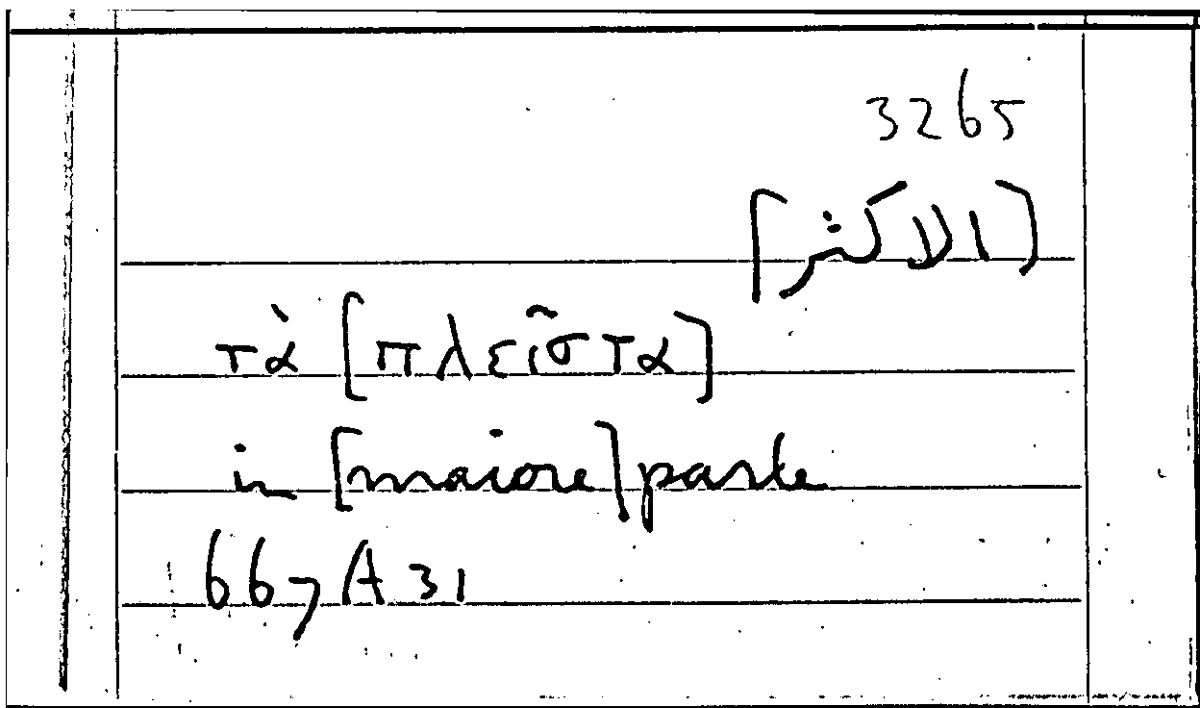 3265
[الاكثر]
τὰ [πλεῖστα]
in [maiore] parte
667 A 31